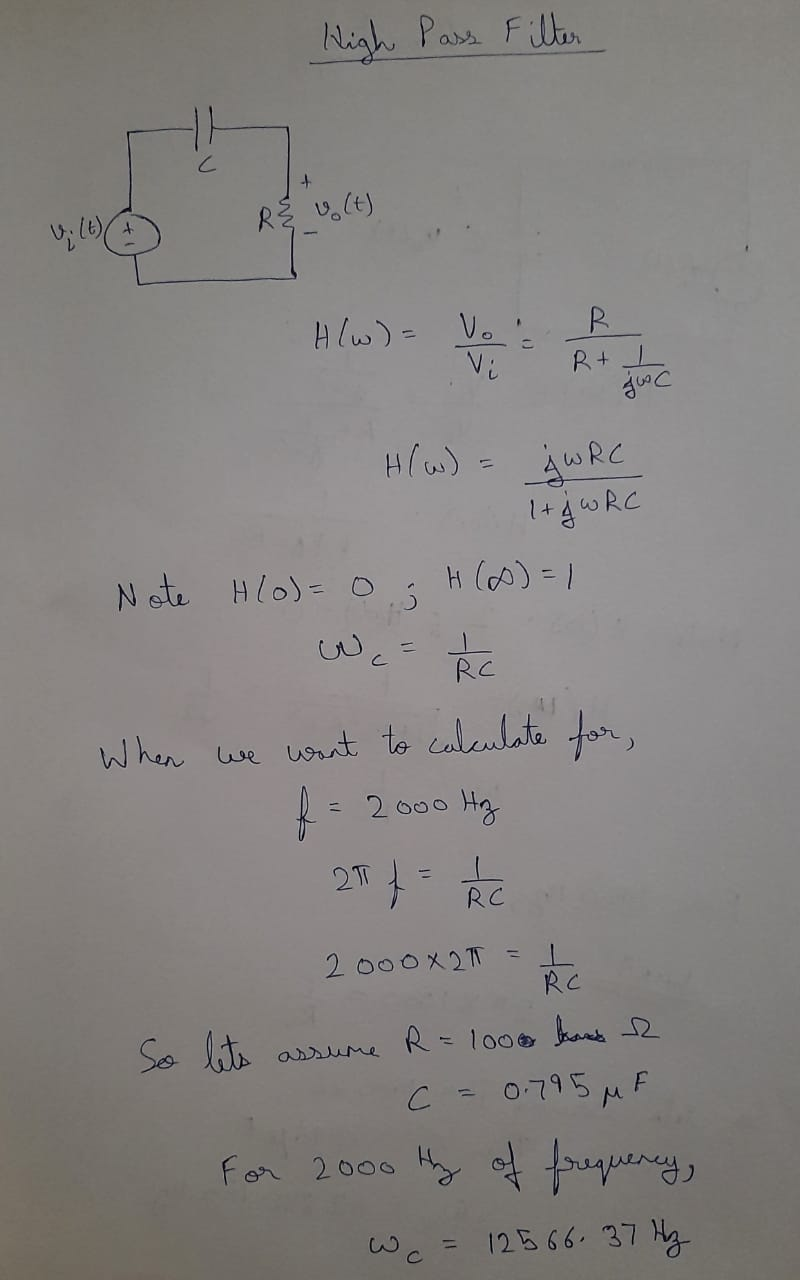 High Pass Filter
C
v_i(t) + - R + v_o(t) -
H(ω) = V_o / V_i = R / (R + 1/(jωC))
H(ω) = jωRC / (1 + jωRC)
Note H(0) = 0 ; H(∞) = 1
ω_c = 1/RC
When we want to calculate for,
f = 2000 Hz
2π f = 1/RC
2000 × 2π = 1/RC
So lets assume R = 100 Ω
C = 0.795 μF
For 2000 Hz of frequency,
ω_c = 12566.37 Hz